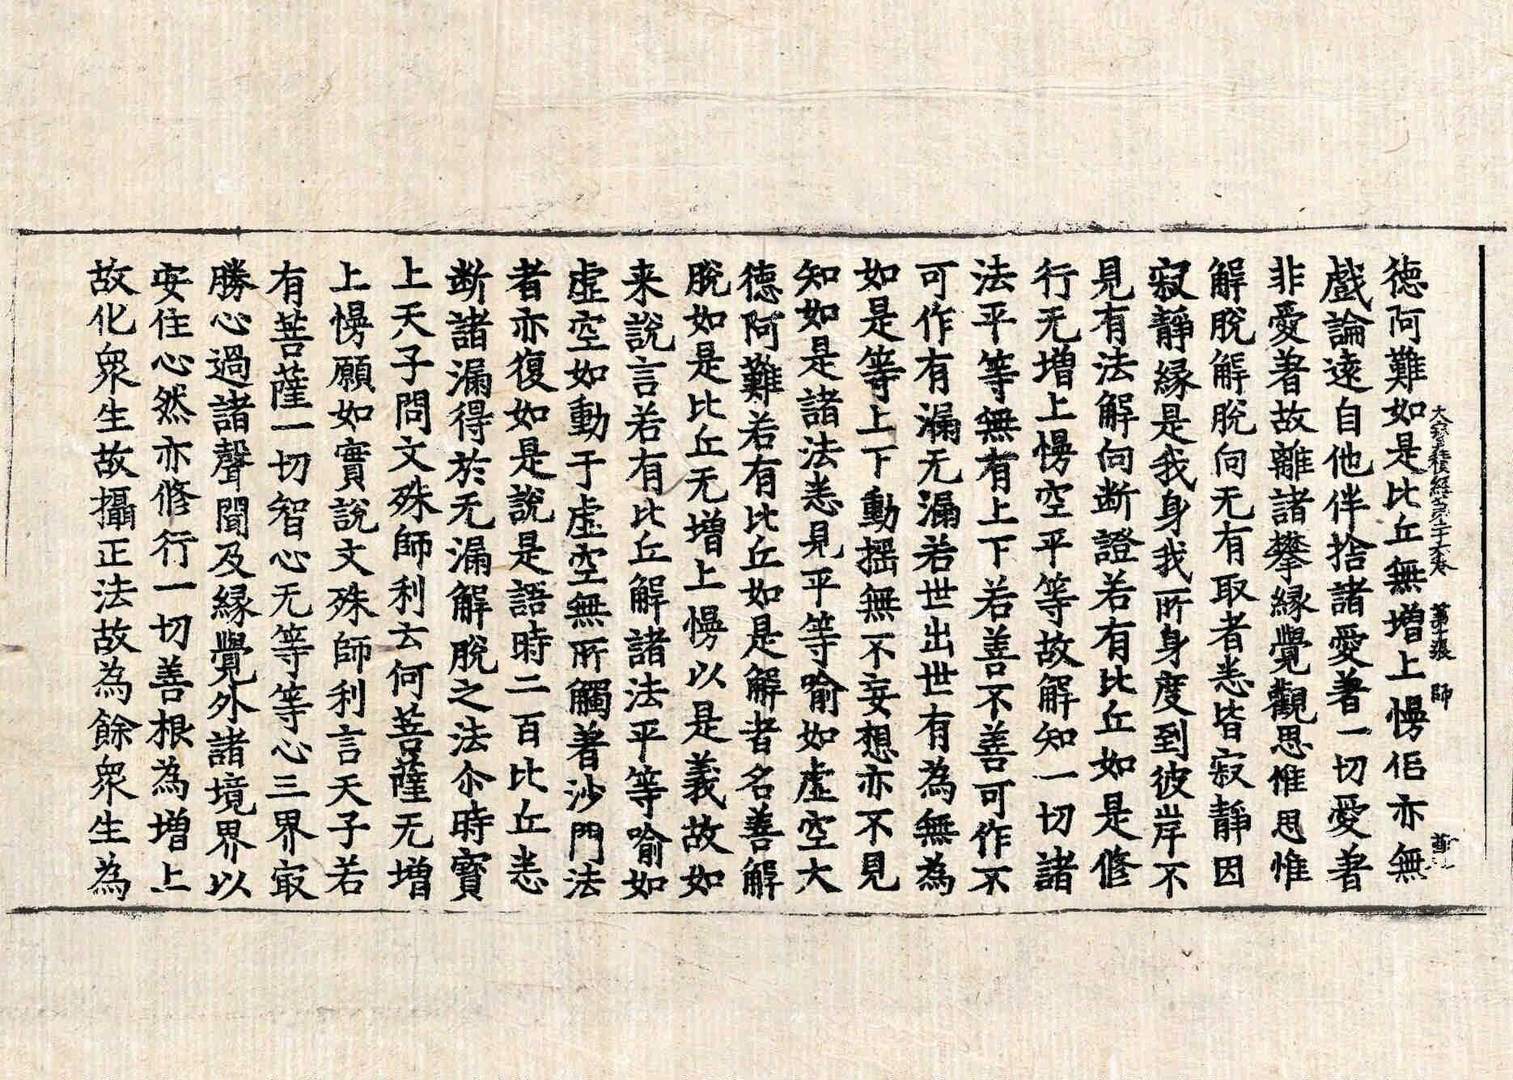 德阿難如是比丘無增上慢佀亦無
大寶積經第二十六卷 第十張 師
戲論遠自他伴捨諸愛著一切愛著
非愛著故離諸攀緣覺觀思惟思惟
解脫解脫向无有取者悉皆寂靜因
寂靜緣是我身我所身度到彼岸不
見有法解向断證若有比丘如是修
行无增上慢空平等故解知一切諸
法平等無有上下若善不善可作不
可作有漏无漏若世出世有為無為
如是等上下動摇無不妄想亦不見
知如是諸法悉見平等喻如虛空大
德阿難若有比丘如是解者名善解
脫如是比丘无增上慢以是義故如
来說言若有比丘解諸法平等喻如
虛空如動于虛空無所觸著沙門法
者亦復如是說是語時二百比丘悉
断諸漏得於无漏解脫之法尒時寶
上天子問文殊師利云何菩薩无增
上慢願如實說文殊師利言天子若
有菩薩一切智心无等等心三界㝡
勝心過諸聲聞及緣覺外諸境界以
安住心然亦修行一切善根為增上
故化眾生故攝正法故為餘眾生為